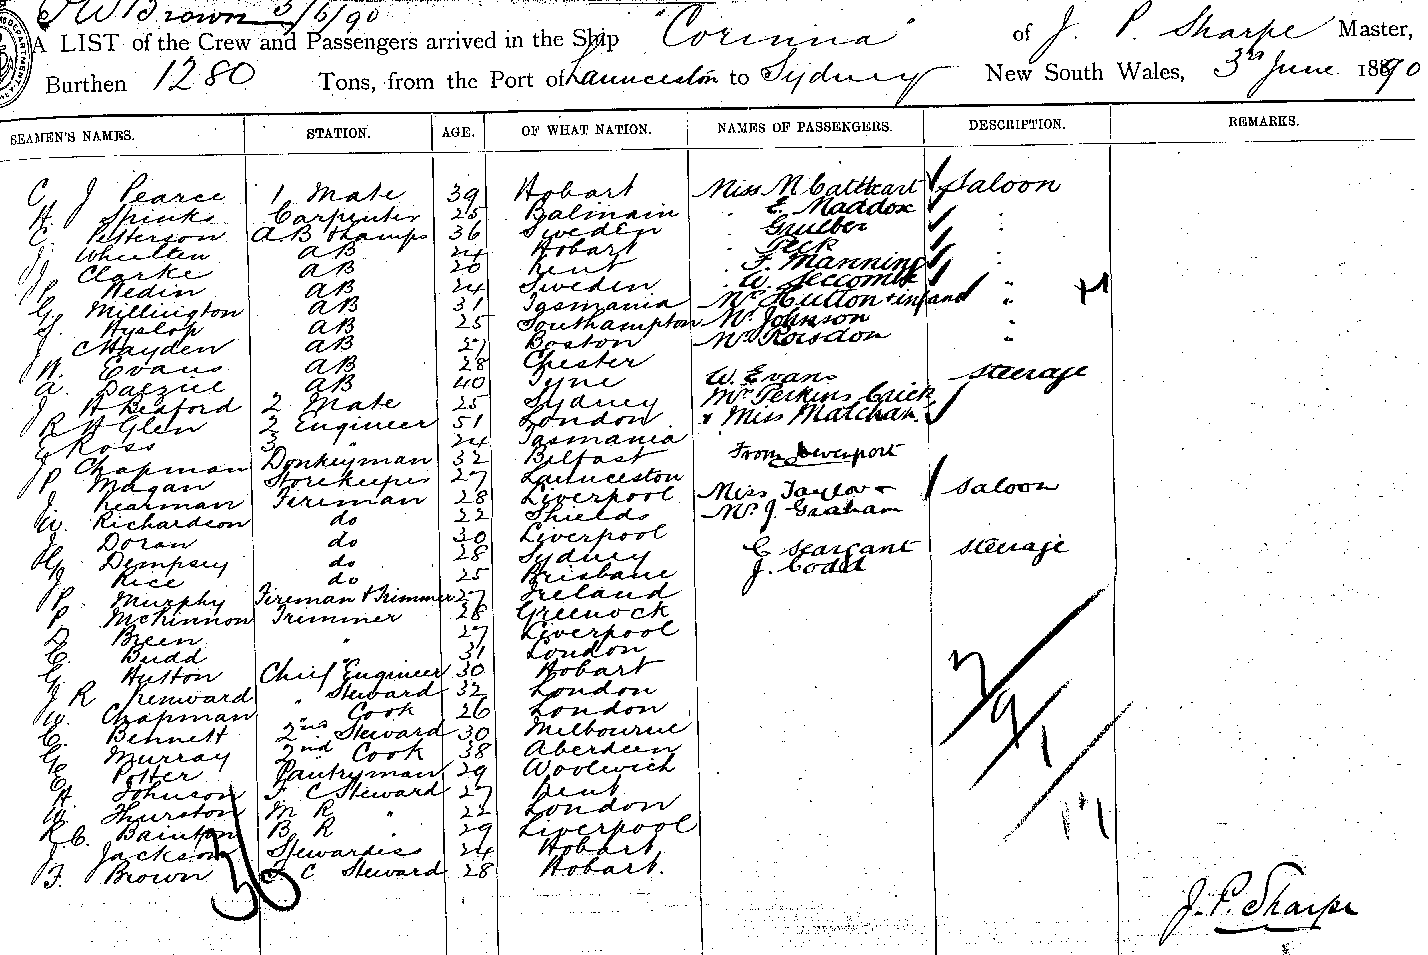 J W Brown 3/6/90
A LIST of the Crew and Passengers arrived in the Ship "Corinna" of J. P. Sharpe Master,
Burthen 1280 Tons, from the Port of Launceston to Sydney New South Wales, 3rd June 1890
SEAMEN'S NAMES. STATION. AGE. OF WHAT NATION. NAMES OF PASSENGERS. DESCRIPTION. REMARKS.
C. J Pearce 1 Mate 39 Hobart Miss M Cathcart Saloon
H Spinks Carpenter 25 Balmain " E. Maddox "
C. Petterson AB & Lamps 36 Sweden "
J. Wheelten AB 24 Hobart " Peck "
J. Clarke AB 20 Kent " F. Manning
P. Hedin AB 24 Sweden " W. Seccombe
G. Millington AB 31 Tasmania Mrs Hutton & infant "
J. Hyslop AB 25 Southampton Mr Johnson
J. C Hayden AB 27 Boston "
W. Evans AB 28 Chester
A. Dalziel AB 40 Tyne W. Evans Steerage
J H Bedford 2 Mate 25 Sydney Mr Perkins
R H Glen 2 Engineer 51 London & Miss
Ross 3 " 24 Tasmania
J. Chapman Donkeyman 32 Belfast From Devenport
P. Magan Storekeeper 27 Launceston
J. Kearman Fireman 28 Liverpool Miss Taylor & Saloon
W. Richardson do 22 Shields Mr J. Graham
J. Doran do 30 Liverpool
H. Dempsey do 28 Sydney C Seargant Steerage
J Rice do 25 Brisbane J. Codd
P. Murphy Fireman & Trimmer 27 Ireland
P. McKinnon Trimmer 28 Greenock
D. Breen " 27 Liverpool
C. Budd " 31 London
G. Hutton Chief Engineer 30 Hobart
J R Kenward " Steward 32 London
W. Chapman " Cook 26 London
C. Bennett 2nd Steward 30 Melbourne
G. Murray 2nd Cook 38 Aberdeen
E. Potter Pantryman 29 Woolwich
H. Johnson F. C Steward 27 Kent
W. Thurston M R " 22 London
R C. Bainton B R " 29 Liverpool
J. Jackson Stewardess 24 Hobart
F. Brown S C Steward 28 Hobart.
36
7
9
1
17
J. P. Sharpe